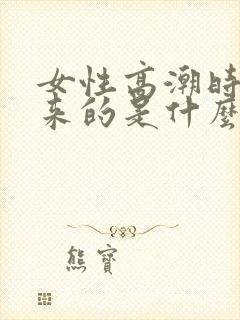 女性高潮時
來的是什麼
熊寶